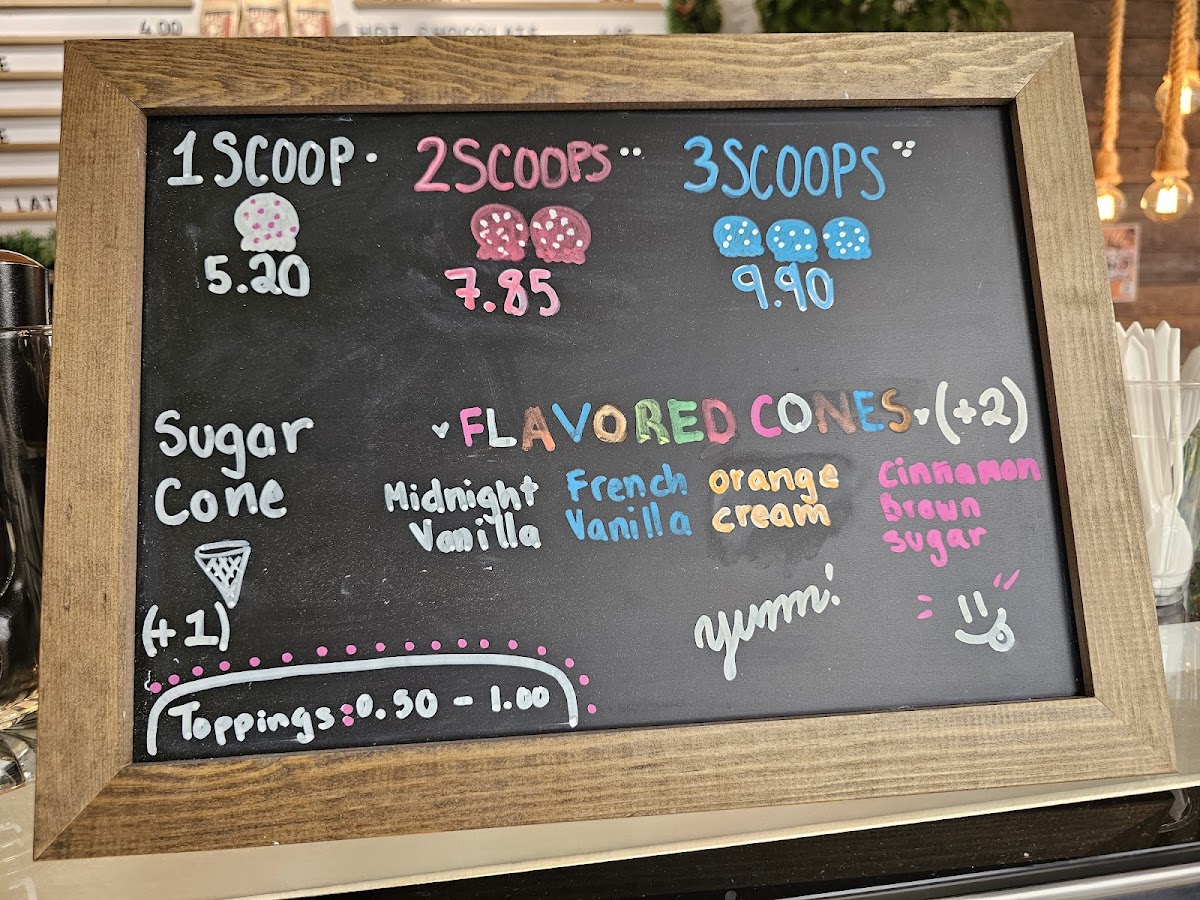 4.00
HOT CHOCOLATE
LAT
1 SCOOP
2 SCOOPS
3 SCOOPS
5.20
7.85
9.90
Sugar
Cone
(+1)
FLAVORED CONES (+2)
Midnight
Vanilla
French
Vanilla
orange
cream
Cinnamon
Brown
sugar
yumm!
Toppings: 0.50 - 1.00